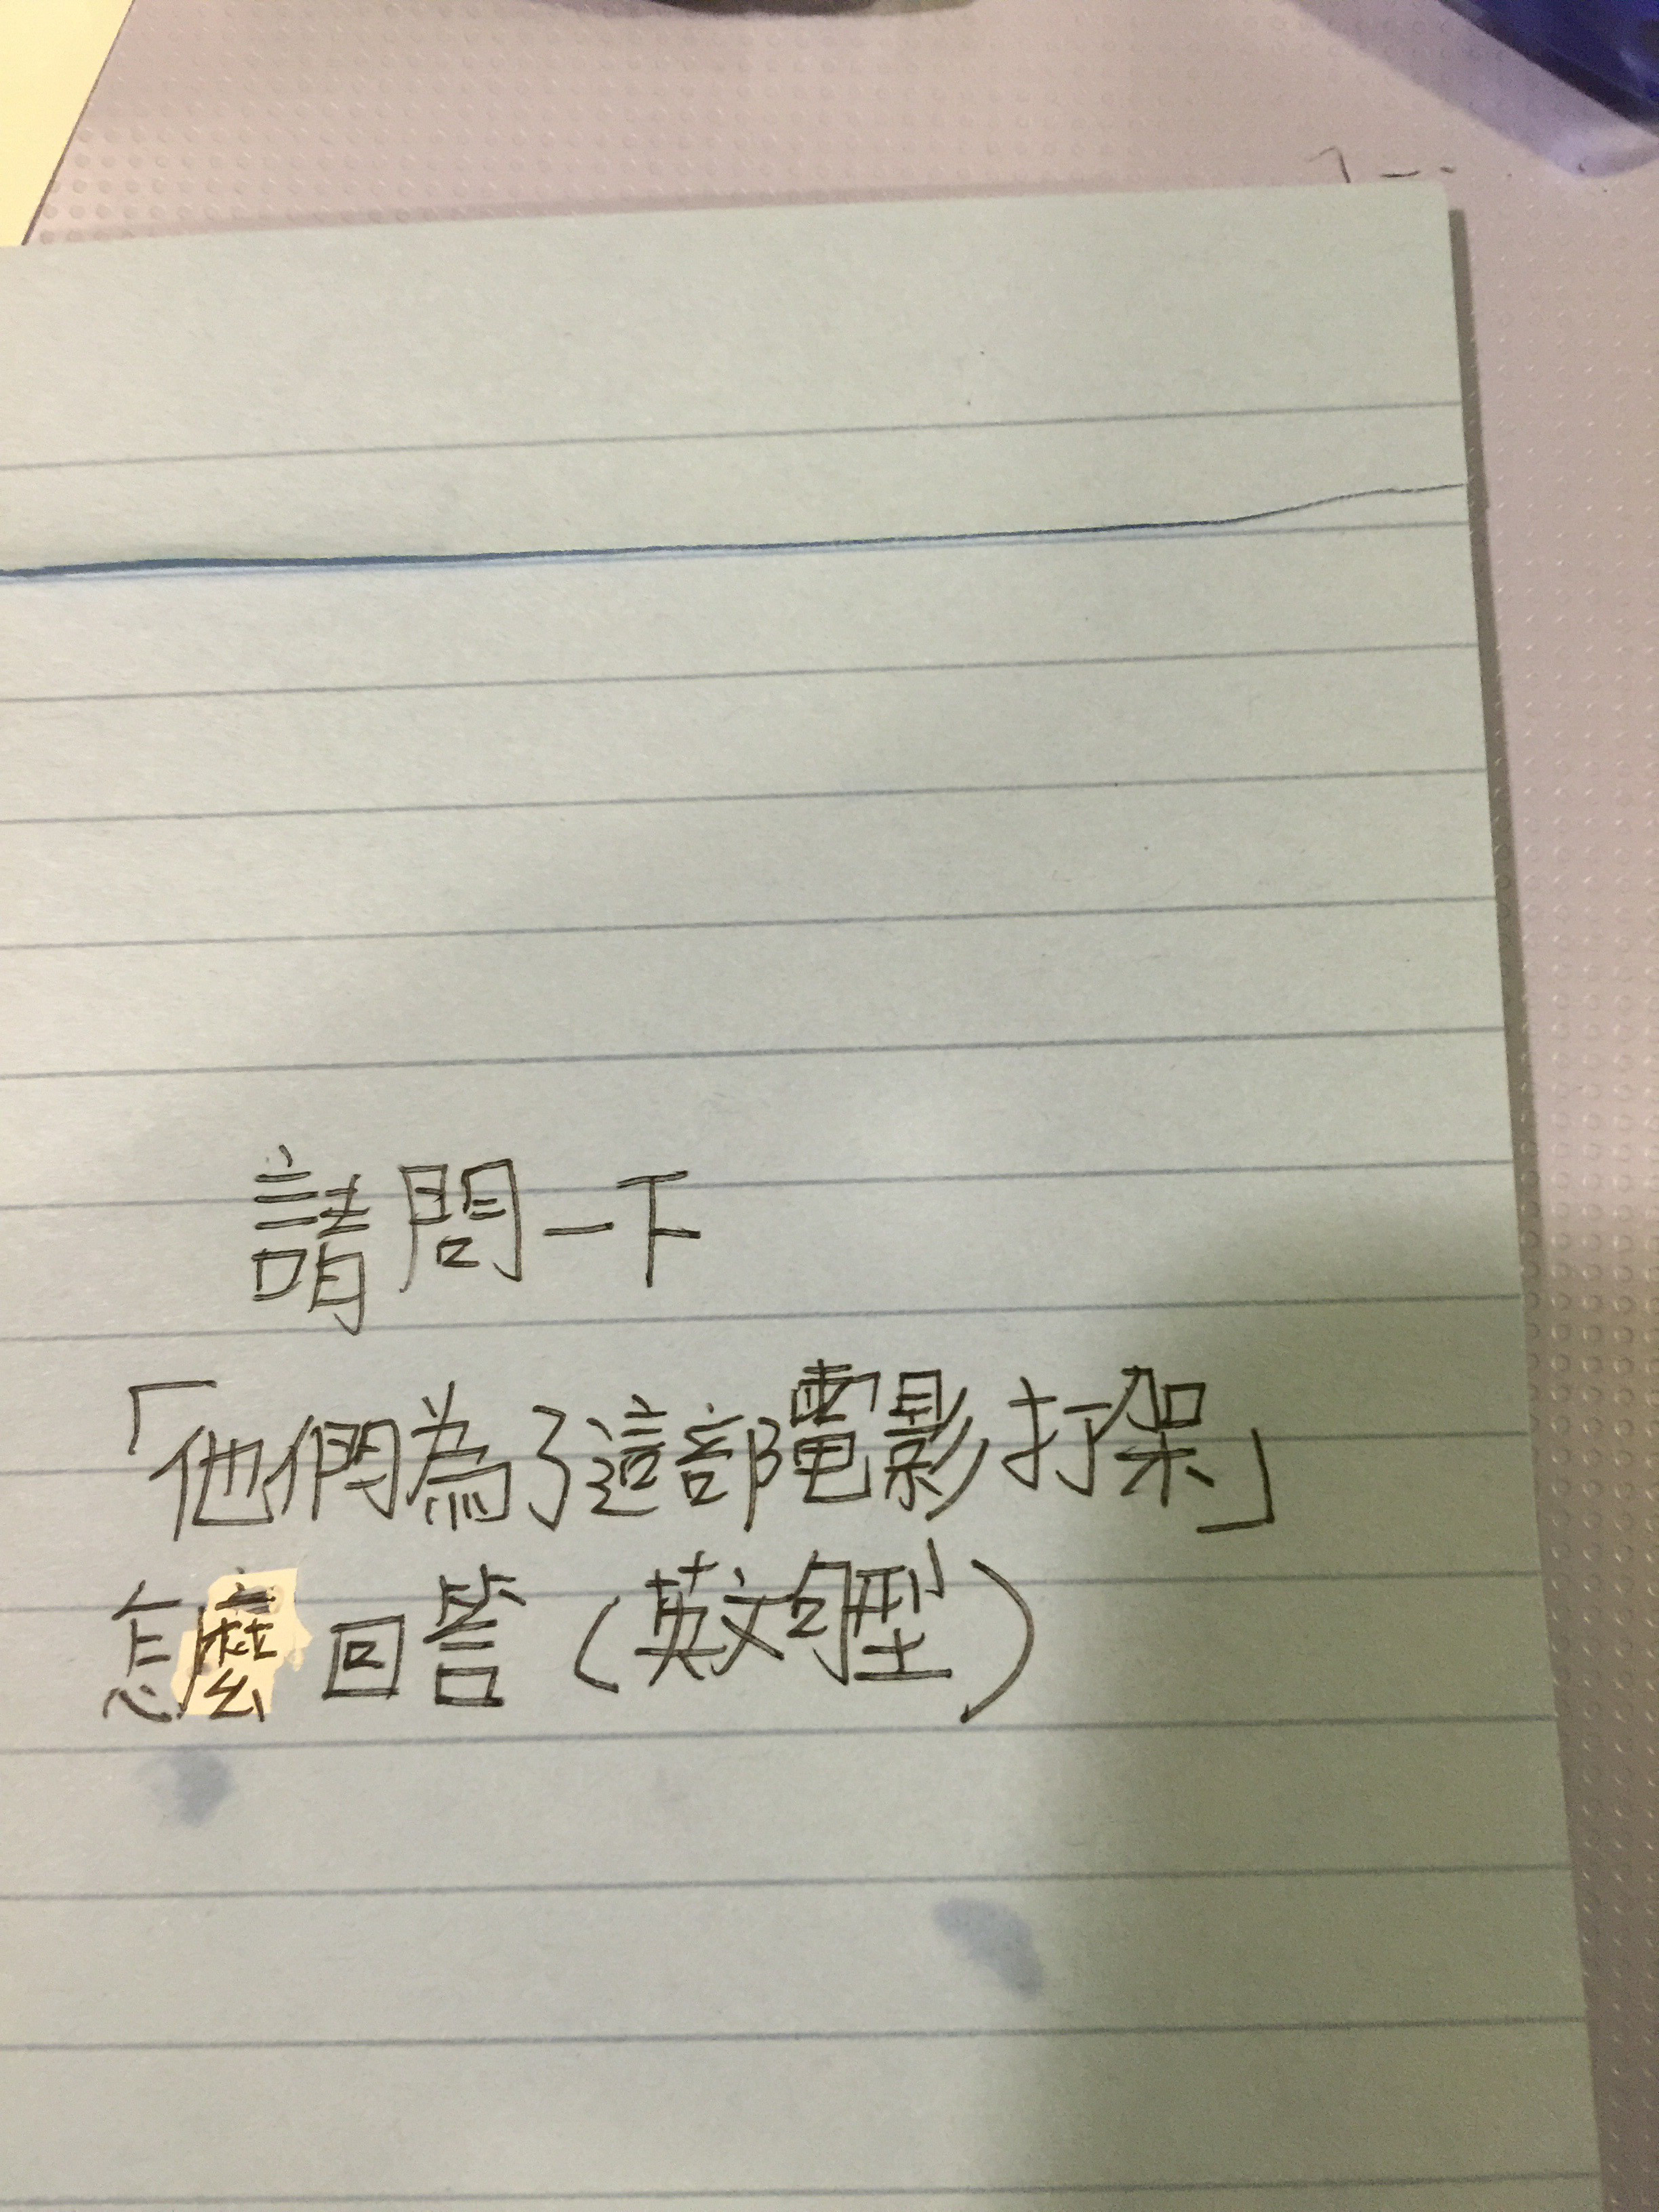 請問一下
「他們為了這部電影打架」
怎麼回答(英文句型)